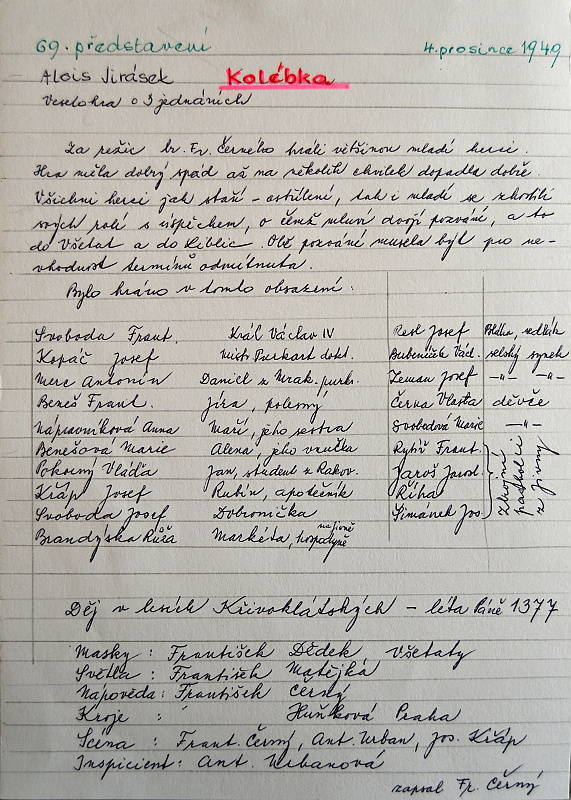 69. představení 4. prosince 1949
Alois Jirásek Kolébka
Veselohra o 3 jednáních
Za režie br. Fr. Černého hráli většinou mladí herci.
Hra měla dobrý spád až na několik chvilek dopadla dobře.
Všichni herci jak staří - ostřílení, tak i mladí se zhostili
svých rolí s úspěchem, o čemž mluví dvojí pozvání, a to
do Všetat a do Liblic. Obě pozvání musela být pro ne-
vhodnost termínů odmítnuta.
Bylo hráno v tomto obsazení:
Svoboda Frant. Král Václav IV Resl Josef Bláha, sedlák
Kopáč Josef Mistr Burkart dokt. Bubeníček Václ. selský synek
Merc Antonín Daniel z Mrak. purkr. Zeman Josef -"- -"-
Beneš Frant. Jíra, polesný Černá Vlasta děvče
Nápravníková Anna Maří, jeho sestra Svobodová Marie -"-
Benešová Marie Alena, jeho vnučka Rytíř Frant.
Pokorný Vláďa Jan, student z Rakov. Jaroš Jarosl.
Kráp Josef Rubín, apotečník Říha
Svoboda Josef Dobronička Šimánek Jos.
Brandýská Růža Markéta, hospodyně na Jivně
Zbrojní pacholci z Jivny
Děj v lesích Křivoklátských - léta Páně 1377
Masky: František Dědek Všetaty
Světla: František Matějka
Nápověda: František Černý
Kroje: Huňková Praha
Scéna: Frant. Černý, Ant. Urban, Jos. Křáp
Inspicient: Ant. Urbanová
zapsal Fr. Černý